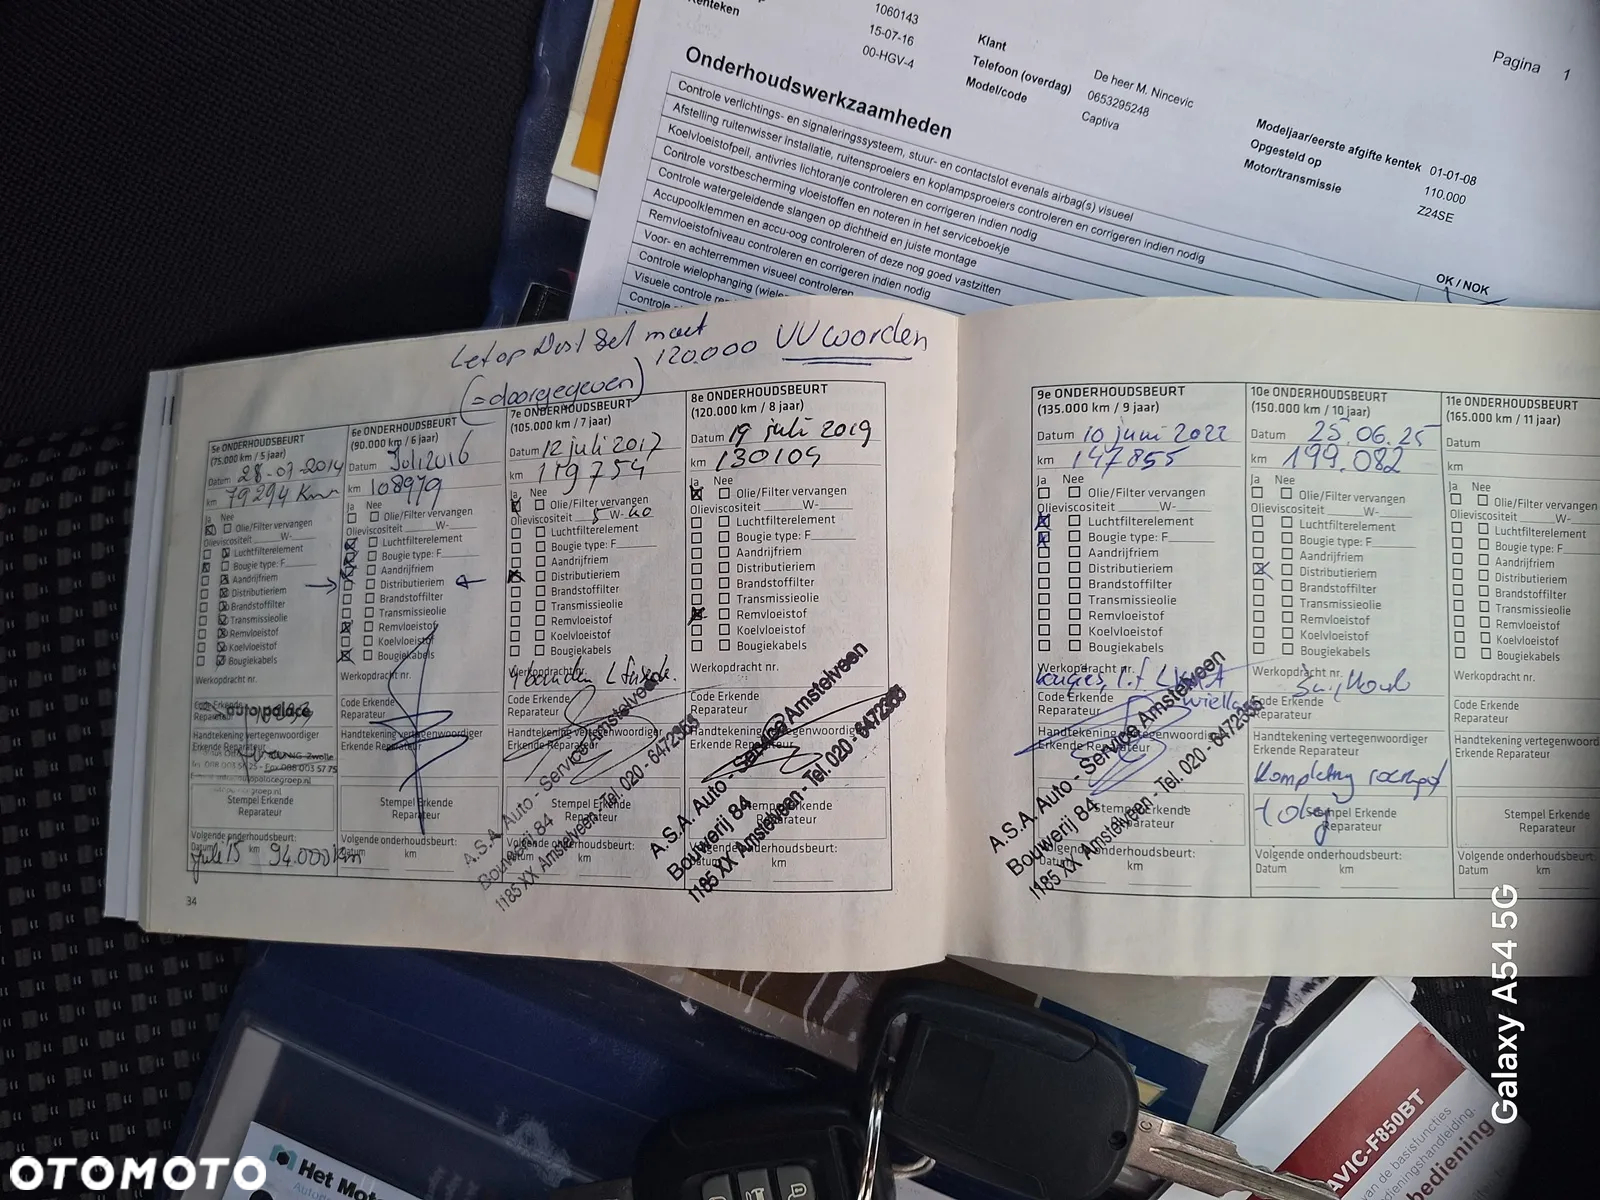 Kenteken
1060143
15-07-16
00-HGV-4
Klant
Telefoon (overdag)
Model/code
De heer M. Nincevic
0653295248
Captiva
Pagina 1
Modeljaar/eerste afgifte kentek 01-01-08
Opgesteld op 110.000
Motor/transmissie Z24SE
Onderhoudswerkzaamheden
Controle verlichtings- en signaleringssysteem, stuur- en contactslot evenals airbag(s) visueel
Afstelling ruitenwisser installatie, ruitensproeiers en koplampsproeiers controleren en corrigeren indien nodig
Koelvloeistofpeil, antivries lichtoranje controleren en corrigeren indien nodig
Controle vorstbescherming vloeistoffen en noteren in het serviceboekje
Controle watergeleidende slangen op dichtheid en juiste montage
Accupoolklemmen en accu-oog controleren of deze nog goed vastzitten
Remvloeistofniveau controleren en corrigeren indien nodig
Voor- en achterremmen visueel controleren
Controle wielophanging (wielen
Visuele controle
Controle
OK / NOK
Let op Dist Bel moet
120.000 VV worden
(= doorgegeven)
5e ONDERHOUDSBEURT
(75.000 km / 5 jaar)
Datum 28-07-2014
km 79294 Km
Ja Nee
Olie/Filter vervangen
Olieviscositeit W-
Luchtfilterelement
Bougie type: F
Aandrijfriem
Distributieriem
Brandstoffilter
Transmissieolie
Remvloeistof
Koelvloeistof
Bougiekabels
Werkopdracht nr.
Code Erkende
Reparateur
auto palace
Handtekening vertegenwoordiger
Erkende Reparateur
Zwolle
Stempel Erkende
Reparateur
Volgende onderhoudsbeurt:
Datum km
94.000 km
34
6e ONDERHOUDSBEURT
(90.000 km / 6 jaar)
Datum Juli 2016
km 108979
Ja Nee
Olie/Filter vervangen
Olieviscositeit W-
Luchtfilterelement
Bougie type: F
Aandrijfriem
Distributieriem
Brandstoffilter
Transmissieolie
Remvloeistof
Koelvloeistof
Bougiekabels
Werkopdracht nr.
Code Erkende
Reparateur
Handtekening vertegenwoordiger
Erkende Reparateur
Stempel Erkende
Reparateur
Volgende onderhoudsbeurt:
Datum km
7e ONDERHOUDSBEURT
(105.000 km / 7 jaar)
Datum 12 juli 2017
km 119754
Ja Nee
Olie/Filter vervangen
Olieviscositeit 5 W- 40
Luchtfilterelement
Bougie type: F
Aandrijfriem
Distributieriem
Brandstoffilter
Transmissieolie
Remvloeistof
Koelvloeistof
Bougiekabels
Werkopdracht nr.
Code Erkende
Reparateur
Handtekening vertegenwoordiger
Erkende Reparateur
Stempel Erkende
Reparateur
Volgende onderhoudsbeurt:
Datum km
A.S.A. Auto - Service Amstelveen
Bouwerij 84
1185 XX Amstelveen - Tel. 020 - 6472355
8e ONDERHOUDSBEURT
(120.000 km / 8 jaar)
Datum 19 juli 2019
km 130104
Ja Nee
Olie/Filter vervangen
Olieviscositeit W-
Luchtfilterelement
Bougie type: F
Aandrijfriem
Distributieriem
Brandstoffilter
Transmissieolie
Remvloeistof
Koelvloeistof
Bougiekabels
Werkopdracht nr.
Code Erkende
Reparateur
Handtekening vertegenwoordiger
Erkende Reparateur
Stempel Erkende
Reparateur
Volgende onderhoudsbeurt:
Datum km
A.S.A. Auto - Service Amstelveen
Bouwerij 84
1185 XX Amstelveen - Tel. 020 - 6472355
9e ONDERHOUDSBEURT
(135.000 km / 9 jaar)
Datum 10 juni 2022
km 147855
Ja Nee
Olie/Filter vervangen
Olieviscositeit W-
Luchtfilterelement
Bougie type: F
Aandrijfriem
Distributieriem
Brandstoffilter
Transmissieolie
Remvloeistof
Koelvloeistof
Bougiekabels
Werkopdracht nr.
Code Erkende
Reparateur
Handtekening vertegenwoordiger
Erkende Reparateur
Stempel Erkende
Reparateur
Volgende onderhoudsbeurt:
Datum km
A.S.A. Auto - Service Amstelveen
Bouwerij 84
1185 XX Amstelveen - Tel. 020 - 6472355
10e ONDERHOUDSBEURT
(150.000 km / 10 jaar)
Datum 25.06.25
km 199.082
Ja Nee
Olie/Filter vervangen
Olieviscositeit W-
Luchtfilterelement
Bougie type: F
Aandrijfriem
Distributieriem
Brandstoffilter
Transmissieolie
Remvloeistof
Koelvloeistof
Bougiekabels
Werkopdracht nr.
Code Erkende
Reparateur
Handtekening vertegenwoordiger
Erkende Reparateur
Kompletny rozrząd
Stempel Erkende
Reparateur
Volgende onderhoudsbeurt:
Datum km
11e ONDERHOUDSBEURT
(165.000 km / 11 jaar)
Datum
km
Ja Nee
Olie/Filter vervangen
Olieviscositeit W-
Luchtfilterelement
Bougie type: F
Aandrijfriem
Distributieriem
Brandstoffilter
Transmissieolie
Remvloeistof
Koelvloeistof
Bougiekabels
Werkopdracht nr.
Code Erkende
Reparateur
Handtekening vertegenwoord
Erkende Reparateur
Stempel Erkende
Reparateur
Volgende onderhoudsbeurt:
Datum km
Galaxy A54 5G
AVIC-F850BT
van de basisfuncties
bedieningshandleiding.
bediening
Het Mot
OTOMOTO